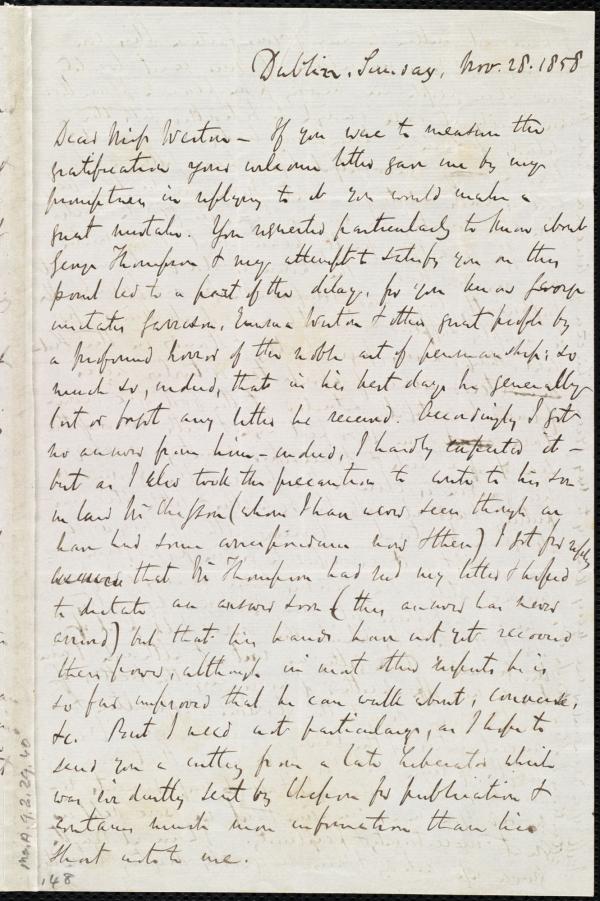 Dublin, Sunday, Nov. 28. 1858
Dear Miss Weston – If you were to measure the
gratification your welcome letter gave me by my
promptness in replying to it you would make a
great mistake. You requested particularly to know about
George Thompson & my attempt to satisfy you on this
point led to a part of the delay, for you know George
imitates Garrison, Emma Weston & other great people by
a profound horror of the noble art of penmanship; so
much so, indeed, that in his best days he generally
lost or forgot any letter he received. Accordingly I got
no answer from him – indeed, I hardly expected it –
but as I also took the precaution to write to his son
in law Mr Chesson (whom I have never seen though we
have had some correspondence now & then) I got for reply
that Mr Thompson had read my letter & hoped
to dictate an answer soon (this answer has never
arrived) but that his hands have not yet recovered
their power, although in most other respects he is
so far improved that he can walk about, converse,
&c. But I need not particularize, as I hope to
send you a cutting from a late Liberator which
was evidently sent by Chesson for publication &
contains much more information than his
short note to me.
Ms. A. 9. 2. 29. 40
148